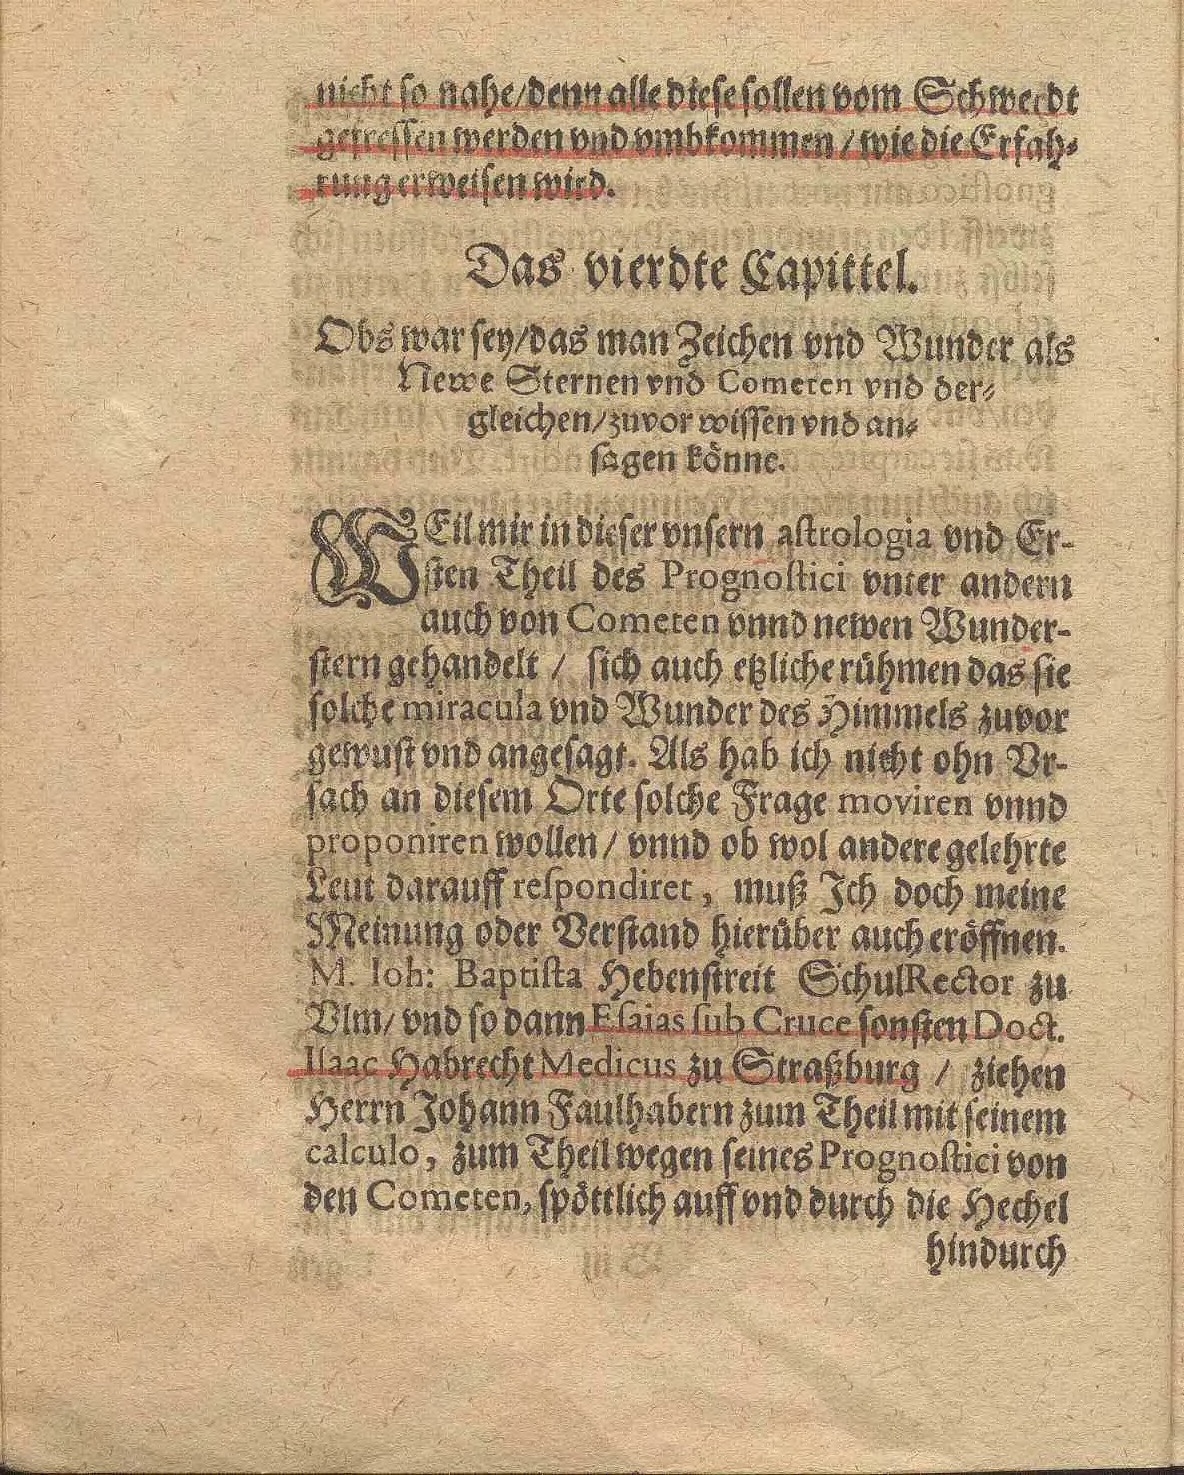 nicht so nahe/denn alle diese sollen vom Schwerdt
gefressen werden vnd vmbkommen / wie die Erfah-
rung erweisen wird.
Das vierdte Capittel.
Obs war sey/das man Zeichen vnd Wunder als
Newe Sternen vnd Cometen vnd der-
gleichen/zuvor wissen vnd an-
sagen könne.
WEil mir in dieser vnsern astrologia vnd Er-
sten Theil des Prognostici vnter andern
auch von Cometen vnnd newen Wunder-
stern gehandelt / sich auch etzliche rühmen das sie
solche miracula vnd Wunder des Himmels zuvor
gewust vnd angesagt. Als hab ich nicht ohn Vr-
sach an diesem Orte solche Frage moviren vnnd
proponiren wollen / vnnd ob wol andere gelehrte
Leut darauff respondiret, muß Ich doch meine
Meinung oder Verstand hierüber auch eröffnen.
M. Ioh: Baptista Hebenstreit SchulRector zu
Vlm/ vnd so dann Esaias sub Cruce sonsten Doct.
Isaac Habrecht Medicus zu Straßburg / ziehen
Herrn Johann Faulhabern zum Theil mit seinem
calculo, zum Theil wegen seines Prognostici von
den Cometen, spöttlich auff vnd durch die Hechel
hindurch